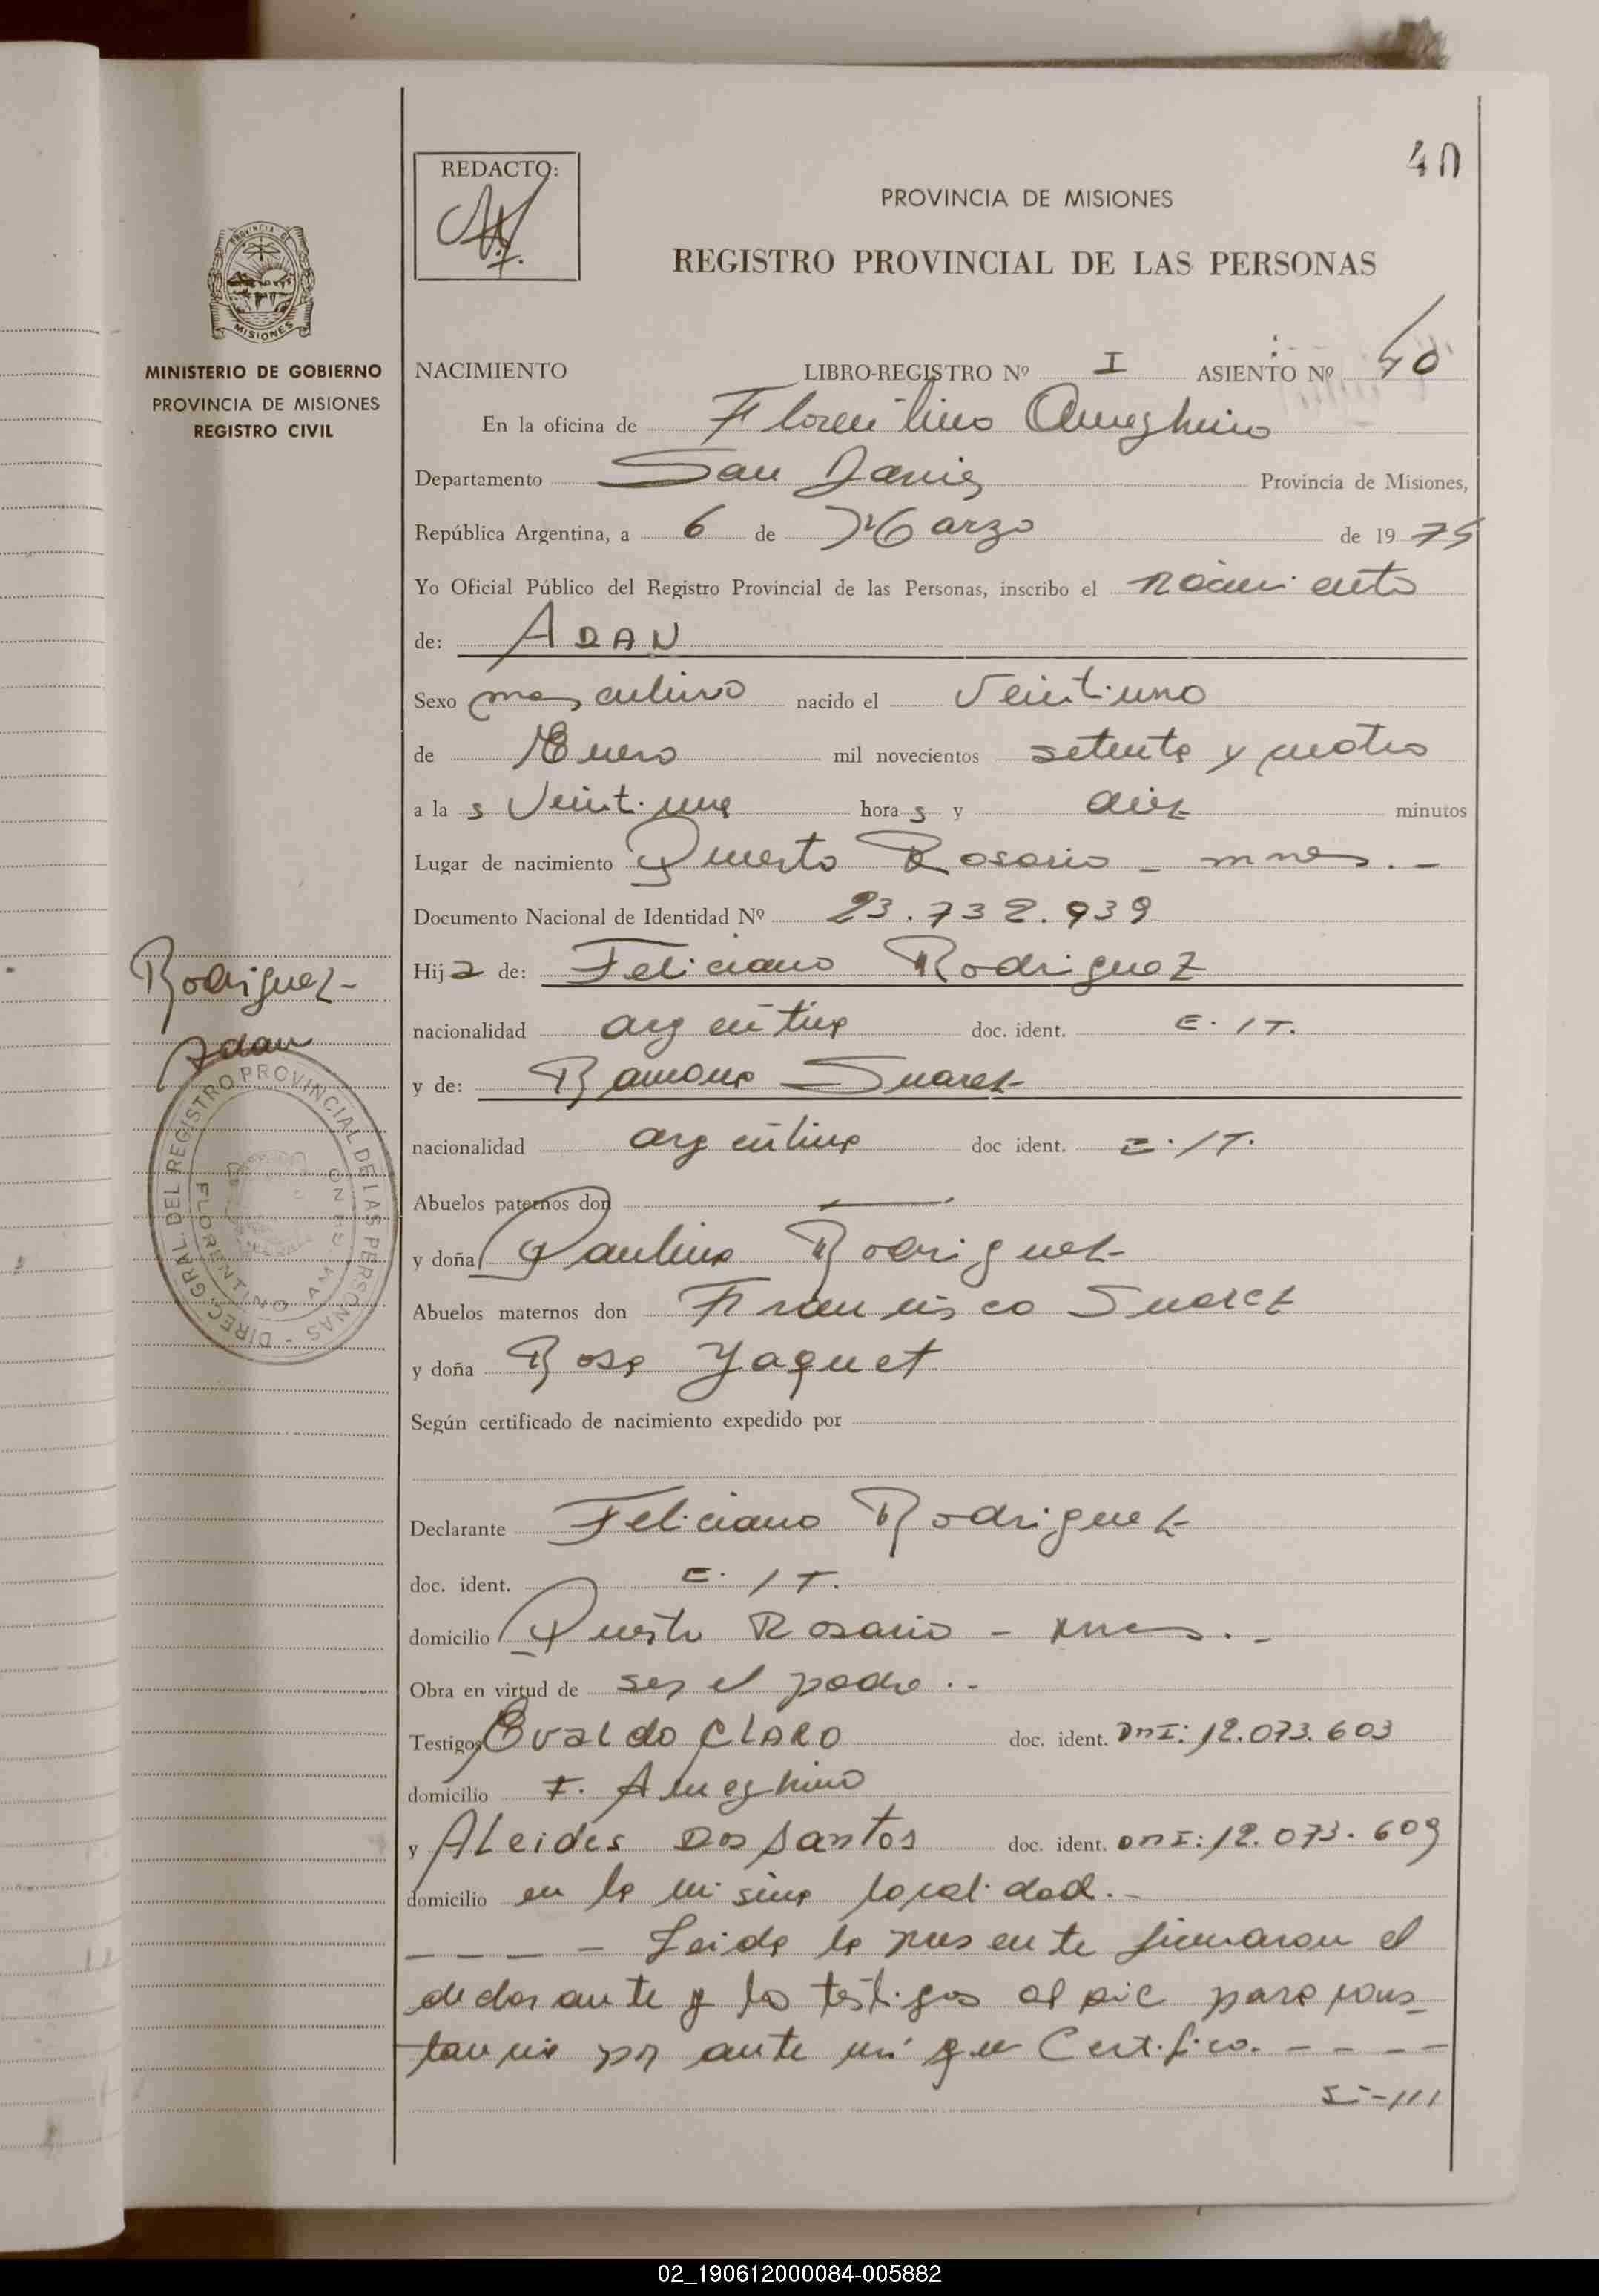 40
REDACTO:
PROVINCIA DE MISIONES
REGISTRO PROVINCIAL DE LAS PERSONAS
PROVINCIA DE
MISIONES
MINISTERIO DE GOBIERNO
PROVINCIA DE MISIONES
REGISTRO CIVIL
NACIMIENTO LIBRO-REGISTRO Nº I ASIENTO Nº 40
En la oficina de Florentino Ameghino
Departamento San Javier Provincia de Misiones,
República Argentina, a 6 de Marzo de 1975
Yo Oficial Público del Registro Provincial de las Personas, inscribo el nacimiento
de: ADAN
Sexo masculino nacido el Veintiuno
de Enero mil novecientos setenta y cuatro
a la s Veintiuna hora s y diez minutos
Lugar de nacimiento Puerto Rosario - mnes.-
Documento Nacional de Identidad Nº 23.732.939
Hijo de: Feliciano Rodriguez
nacionalidad argentina doc. ident. E./T.
y de: Ramona Suarez
nacionalidad argentina doc ident. E./T.
Abuelos paternos don —
y doña Paulina Rodriguez
Abuelos maternos don Francisco Suarez
y doña Rosa Yaquet
Según certificado de nacimiento expedido por
Declarante Feliciano Rodriguez
doc. ident. E./T.
domicilio Puerto Rosario - mnes.-
Obra en virtud de ser el padre.-
Testigos Evaldo CLARO doc. ident. DnI: 12.073.603
domicilio F. Ameghino
y ALcides Dos Santos doc. ident. DnI: 12.073.609
domicilio en la misma localidad.-
- - - - Leida la presente firmaron el
declarante y los testigos al pie para cons-
tancia por ante mi que Certifico. - - - -
Si-///
Rodriguez-
Adan
DIREC. GRAL. DEL REGISTRO PROVINCIAL DE LAS PERSONAS -
FLORENTINO AM
02_190612000084-005882